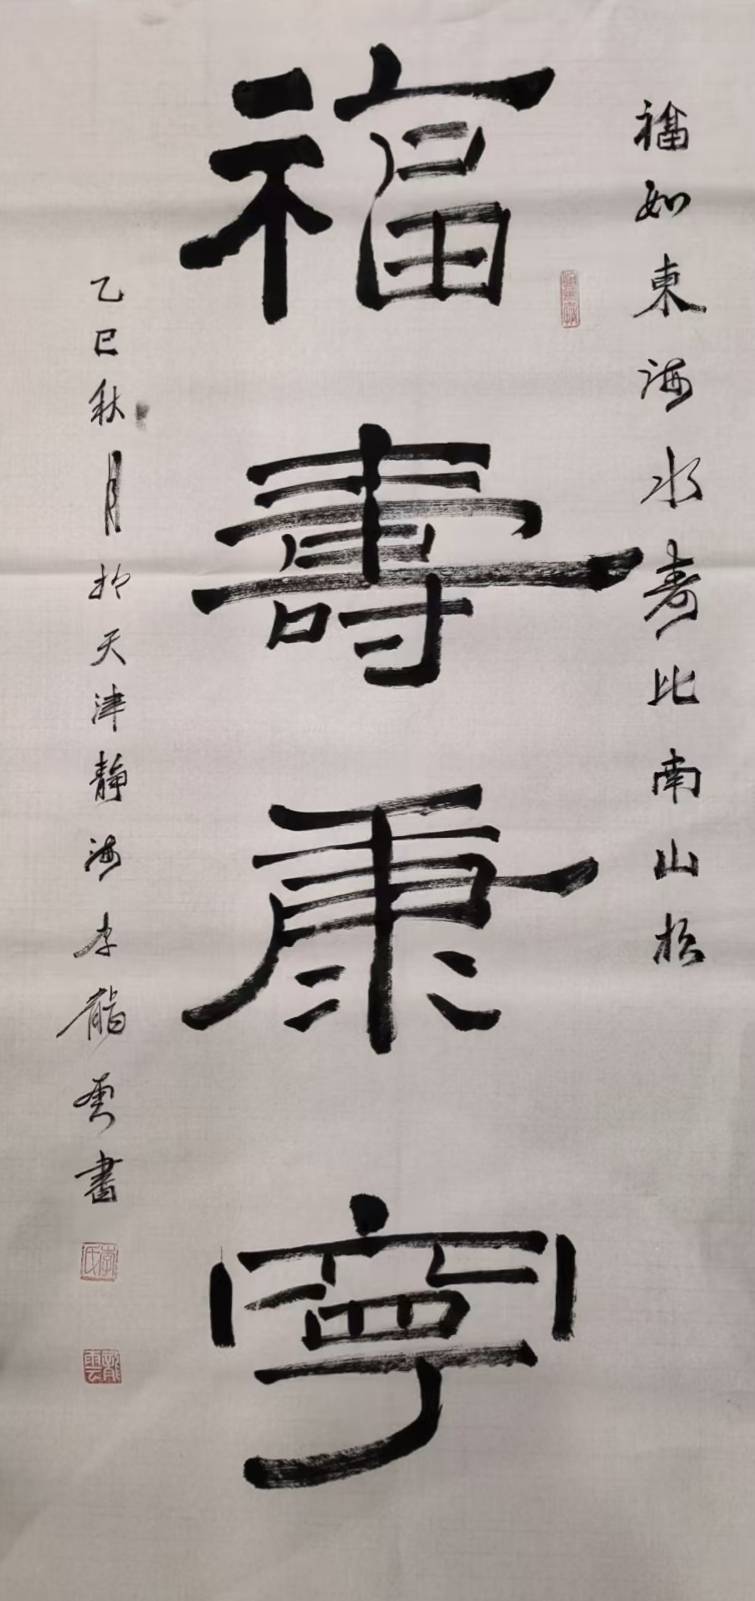 福如東海水壽比南山松
福壽康寧
乙巳秋月於天津靜海李龍雲書
李氏
龍雲